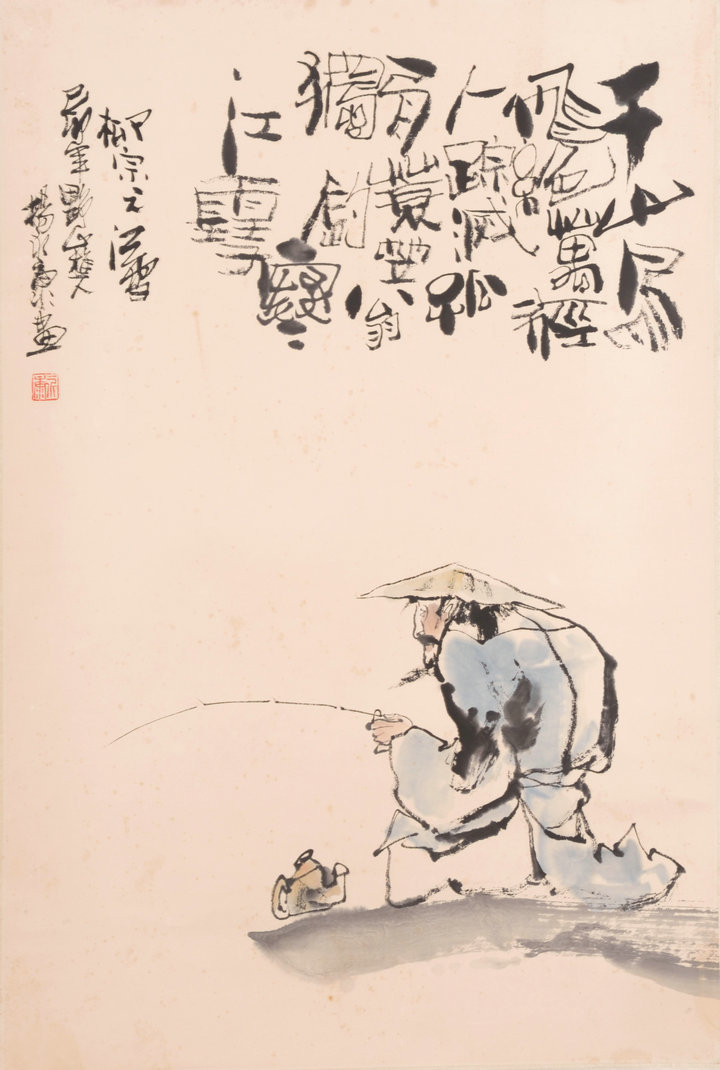 千山鳥
飛絕萬徑
人踪滅孤
舟蓑笠翁
獨釣寒
江雪
柳宗元江雪
年
楊 畫